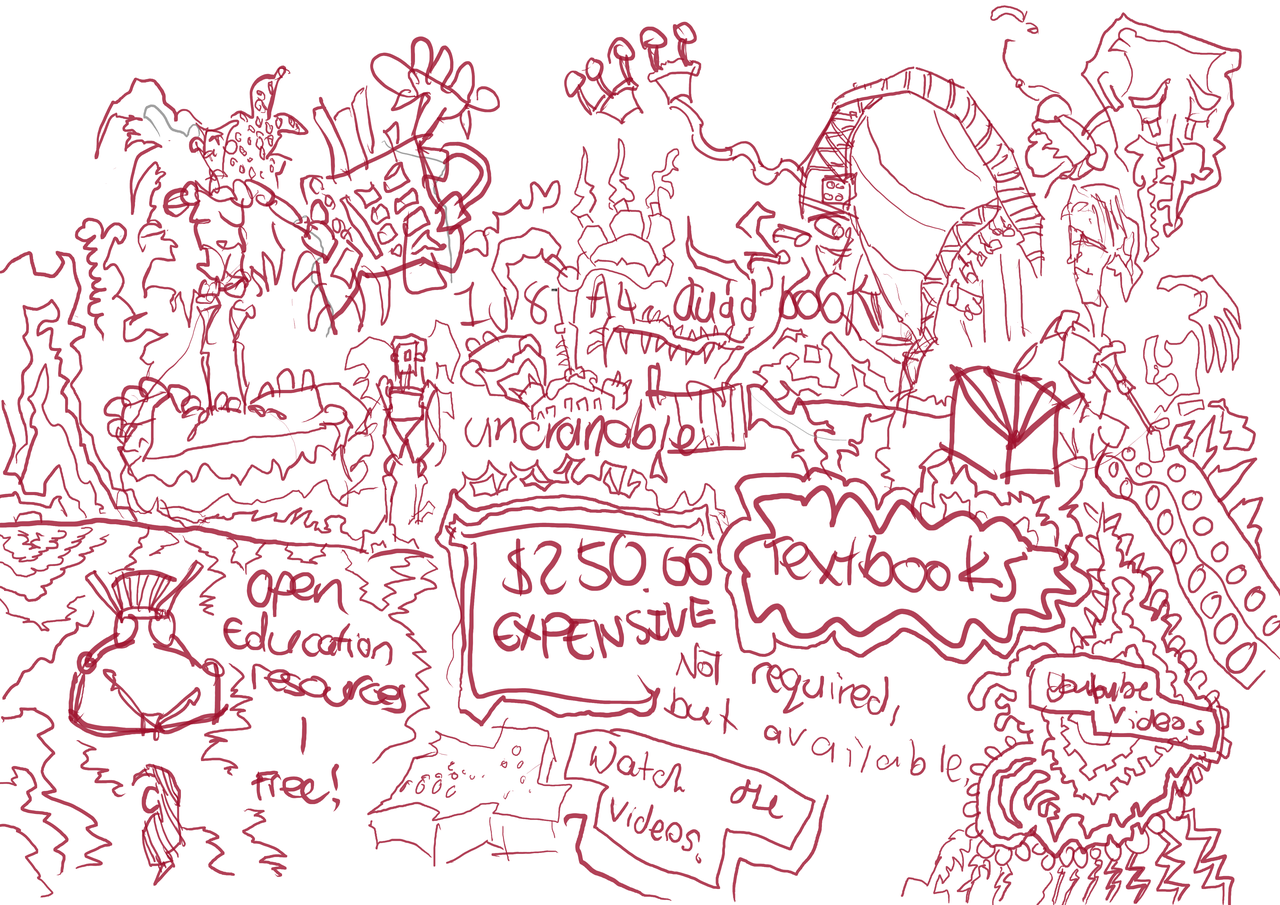 1 J 8 A4 Quad book
uncranable
$250.00
EXPENSIVE
Textbooks
Not required,
but available,
open
Education
resources
|
Free!
Youtube
Videos
Watch the
videos.